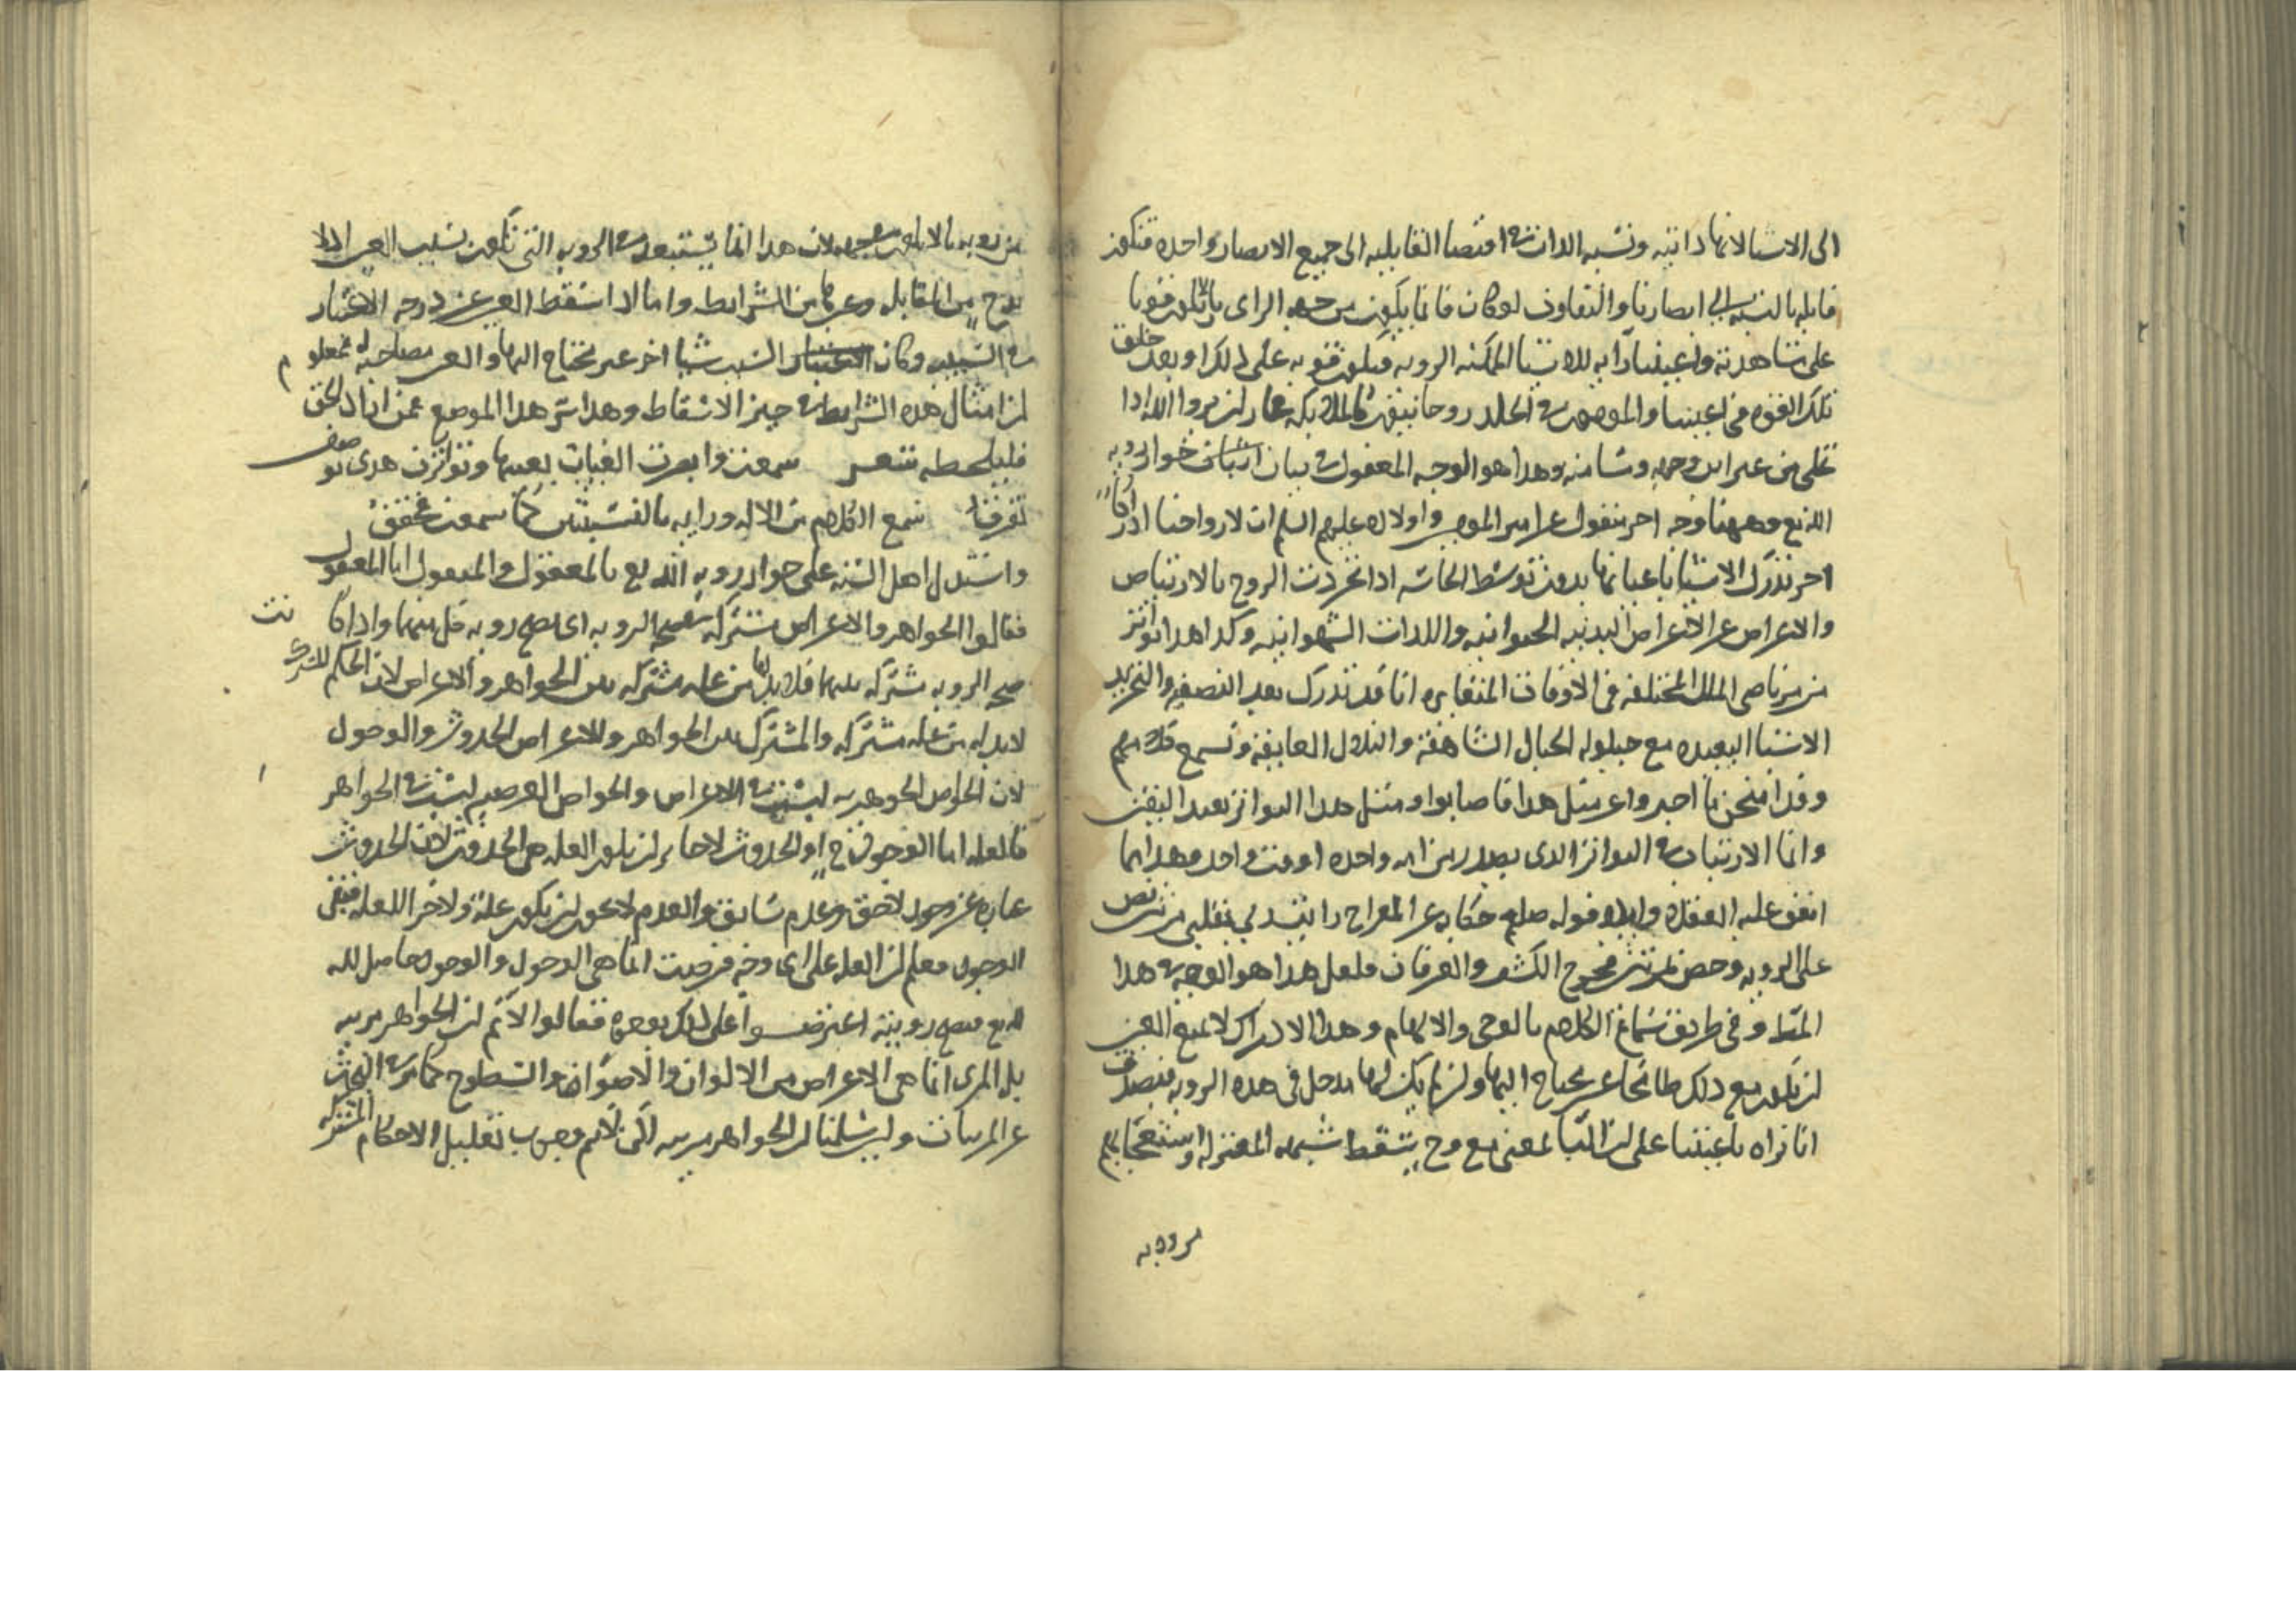 الى الاشيا لانها ذاتيه ونسبه الذات في اقتضا القابليه الى جميع الابصار واحده فتكون
قابله بالنسبه الى ابصارنا والتفاوت لو كان فانما يكون من جهه الراى بان يكون قويا
على مشاهدته واعيننا رايه للاشيا الممكنه الرويه فيكون قويه على ذلك او بعد خلق
تلك القوه في اعيننا والمومنون في الخلد روحانيون كالملايكه فجاز ان يروا الله اذا
تجلى من غير اين وجهه وشامنه وهذا هو الوجه المعقول في بيان اثبات جواز رويه
الله تع وههنا وجه اخر منقول عن امير المومنين واولاده عليهم السلم ان لارواحنا ادراكا
اخر تدرك الاشيا باعيانها بدون توسط الحاسه اذا تجردت الروح بالارتياض
والاعراض عن الاغراض البدنيه الحيوانيه واللذات الشهوانيه وكذا هذا تواتر
من مرتاضى الملل المختلفه في الاوقات المتغايره انا قد ندرك بعد التصفيه والتجريد
الاشيا البعيده مع حيلوله الجبال الشاهقه والتلال العايقه ونسمع كلامهم
وقد امتحن ما اخبروا عن مثل هذا فاصابوا ومثل هذا التواتر يفيد اليقين
وانما الارتياب في التواتر الذى يصدر من امه واحده او وقت واحد وهذا مما
اتفق عليه العقلا وايد قوله صلعم حكايه عن المعراج رايت ربي بقلبي من نص
على الرويه وحض لمن مخرج الكشف والعرفان ولعل هذا هو الوجه في هذا
المقا وفي طريق سماع الكلام بالوحى والالهام وهذا الادراك لا يمنع العين
ان يكون مع ذلك طامحا غير محتاج اليها وان لم يكن لها مدخل في هذه الرويه فيصدق
انا نراه باعيننا على ان البا لمعنى مع وح يسقط شبهه المعتزله واستعجابهم
من رويه
من رويه ما لا يكون في جهه لان هذا انما يستبعد في الرويه التى تكون بسبب العين اذ لا
بد ح من المقابله وغيرها من الشرايط واما اذا اسقط العين عن درجه الاعتبار
في السبب وكان السبب شيا اخر غير محتاج اليها والعين مصاحبه له فمعلوم
ان امثال هذه الشرايط في حيز الاسقاط وهذا سر هذا الموضع فمن اراد الحق
فليلحظه شعر سمعت وابصرت الغياب بعينها وتواترت هدى
تعرفنا نسمع الكلام من الاله ورايه بالنسبتين كما سمعت محقق
واستدل اهل السنه على جواز رويه الله تع بالمعقول والمنقول اما المعقول
فقالوا الجواهر والاعراض مشتركه في صحه الرويه اى يصح رويه كل منهما واذا كانت
صحه الرويه مشتركه بينهما فلا بد لها من علة مشتركه بين الجواهر والاعراض لان الحكم المشترك
لا بد له من علة مشتركه والمشترك بين الجواهر والاعراض الحدوث والوجود
لان الخواص الجوهريه ليست في الاعراض والخواص العرضيه ليست في الجواهر
فالعله اما الوجود ح او الحدوث لا جايز ان يكون العله هى الحدوث لان الحدوث
عباره عن وجود لاحق وعدم سابق والعدم لا يجوز ان يكون علة ولا جز العله فبقى
الوجود فعلم ان العله على اى وجه فرضت انما هى الوجود والوجود حاصل لله
تع فيصح رويته اعترضوا على ذلك بوجوه فقالوا لا نم ان الجواهر مرييه
بل المرى انما هى الاعراض من الالوان والاضوا والسطوح كما مر في البحث
عن المرييات ولين سلمنا ان الجواهر مرييه لكن لا نم وجوب تعليل الاحكام المشتركه